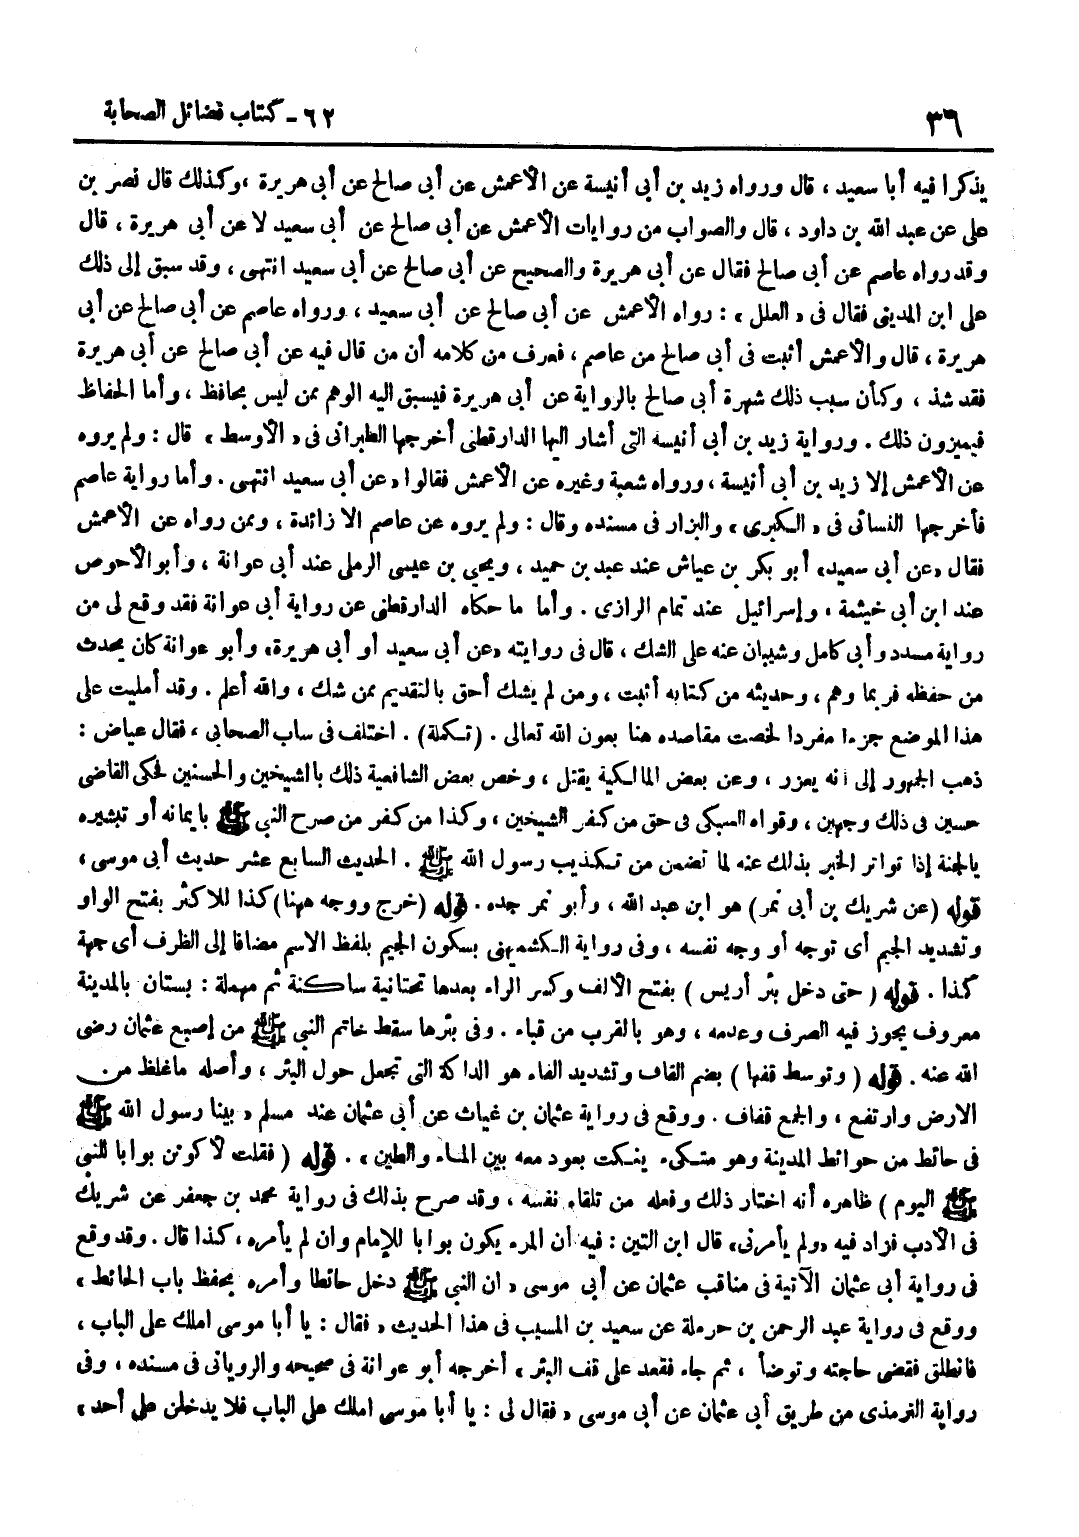 ٣٦
٦٢ - كتاب فضائل الصحابة
يذكرا فيه أبا سعيد ، قال ورواه زيد بن أبى أنيسة عن الأعمش عن أبى صالح عن أبى هريرة ، وكذلك قال نصر بن
على عن عبد الله بن داود ، قال والصواب من روايات الأعمش عن أبى صالح عن أبى سعيد لا عن أبى هريرة ، قال
وقد رواه عاصم عن أبى صالح فقال عن أبى هريرة والصحيح عن أبى صالح عن أبى سعيد انتهى ، وقد سبق إلى ذلك
على ابن المدينى فقال فى « العلل » : رواه الأعمش عن أبى صالح عن أبى سعيد ، ورواه عاصم عن أبى صالح عن أبى
هريرة ، قال والأعمش أثبت فى أبى صالح من عاصم ، فعرف من كلامه أن من قال فيه عن أبى صالح عن أبى هريرة
فقد شذ ، وكأن سبب ذلك شهرة أبى صالح بالرواية عن أبى هريرة فيسبق اليه الوهم ممن ليس بحافظ ، وأما الحفاظ
فيميزون ذلك . ورواية زيد بن أبى أنيسه التى أشار اليها الدارقطنى أخرجها الطبرانى فى « الأوسط » قال : ولم يروه
عن الأعمش إلا زيد بن أبى أنيسة ، ورواه شعبة وغيره عن الأعمش فقالوا « عن أبى سعيد انتهى . وأما رواية عاصم
فأخرجها النسائى فى « الكبرى » والبزار فى مسنده وقال : ولم يروه عن عاصم الا زائدة ، وممن رواه عن الأعمش
فقال « عن أبى سعيد » أبو بكر بن عياش عند عبد بن حميد ، ويحيي بن عيسى الرملى عند أبى عوانة ، وأبو الأحوص
عند ابن أبى خيثمة ، وإسرائيل عند تمام الرازى . وأما ما حكاه الدارقطنى عن رواية أبى عوانة فقد وقع لى من
رواية مسدد وأبى كامل وشيبان عنه على الشك ، قال فى روايته « عن أبى سعيد أو أبى هريرة » وأبو عوانة كان يحدث
من حفظه فربما وهم ، وحديثه من كتابه أثبت ، ومن لم يشك أحق بالتقديم ممن شك ، والله أعلم . وقد أمليت على
هذا الموضع جزءا مفردا لخصت مقاصده هنا بعون الله تعالى . (تكملة) . اختلف فى ساب الصحابى ، فقال عياض :
ذهب الجمهور إلى أنه يعزر ، وعن بعض المالكية يقتل ، وخص بعض الشافعية ذلك بالشيخين والحسنين فحكى القاضى
حسين فى ذلك وجهين ، وقواه السبكى فى حق من كفر الشيخين ، وكذا من كفر من صرح النبى ﷺ بايمانه أو تبشيره
بالجنة إذا تواتر الخبر بذلك عنه لما تضمن من تكذيب رسول الله ﷺ . الحديث السابع عشر حديث أبى موسى ،
قوله (عن شريك بن أبى نمر) هو ابن عبد الله ، وأبو نمر جده . قوله (خرج ووجه ههنا) كذا للاكثر بفتح الواو
وتشديد الجيم أى توجه أو وجه نفسه ، وفى رواية الكشميهنى بسكون الجيم بلفظ الاسم مضافا إلى الظرف أى جهة
كذا . قوله ( حتى دخل بئر أريس ) بفتح الألف وكسر الراء بعدها تحتانية ساكنة ثم مهملة : بستان بالمدينة
معروف يجوز فيه الصرف وعدمه ، وهو بالقرب من قباء . وفى بئرها سقط خاتم النبى ﷺ من إصبع عثمان رضى
الله عنه . قوله ( وتوسط قفها ) بضم القاف وتشديد الفاء هو الداكة التى تجعل حول البئر ، وأصله ما غلظ من
الارض وارتفع ، والجمع قفاف . ووقع فى رواية عثمان بن غياث عن أبى عثمان عند مسلم « بينا رسول الله ﷺ
فى حائط من حوائط المدينة وهو متكىء ينكت بعود معه بين الماء والطين » . قوله ( فقلت لأكونن بوابا للنبى
ﷺ اليوم ) ظاهره أنه اختار ذلك وفعله من تلقاء نفسه ، وقد صرح بذلك فى رواية محمد بن جعفر عن شريك
فى الأدب فزاد فيه « ولم يأمرنى » قال ابن التين : فيه أن المرء يكون بوابا للإمام وان لم يأمره ، كذا قال . وقد وقع
فى رواية أبى عثمان الآتية فى مناقب عثمان عن أبى موسى « ان النبى ﷺ دخل حائطا وأمره بحفظ باب الحائط »
ووقع فى رواية عبد الرحمن بن حرملة عن سعيد بن المسيب فى هذا الحديث « فقال : يا أبا موسى املك على الباب ،
فانطلق فقضى حاجته وتوضأ ، ثم جاء فقعد على قف البئر » أخرجه أبو عوانة فى صحيحه والرويانى فى مسنده ، وفى
رواية الترمذى من طريق أبى عثمان عن أبى موسى « فقال لى : يا أبا موسى املك على الباب فلا يدخلن على أحد »